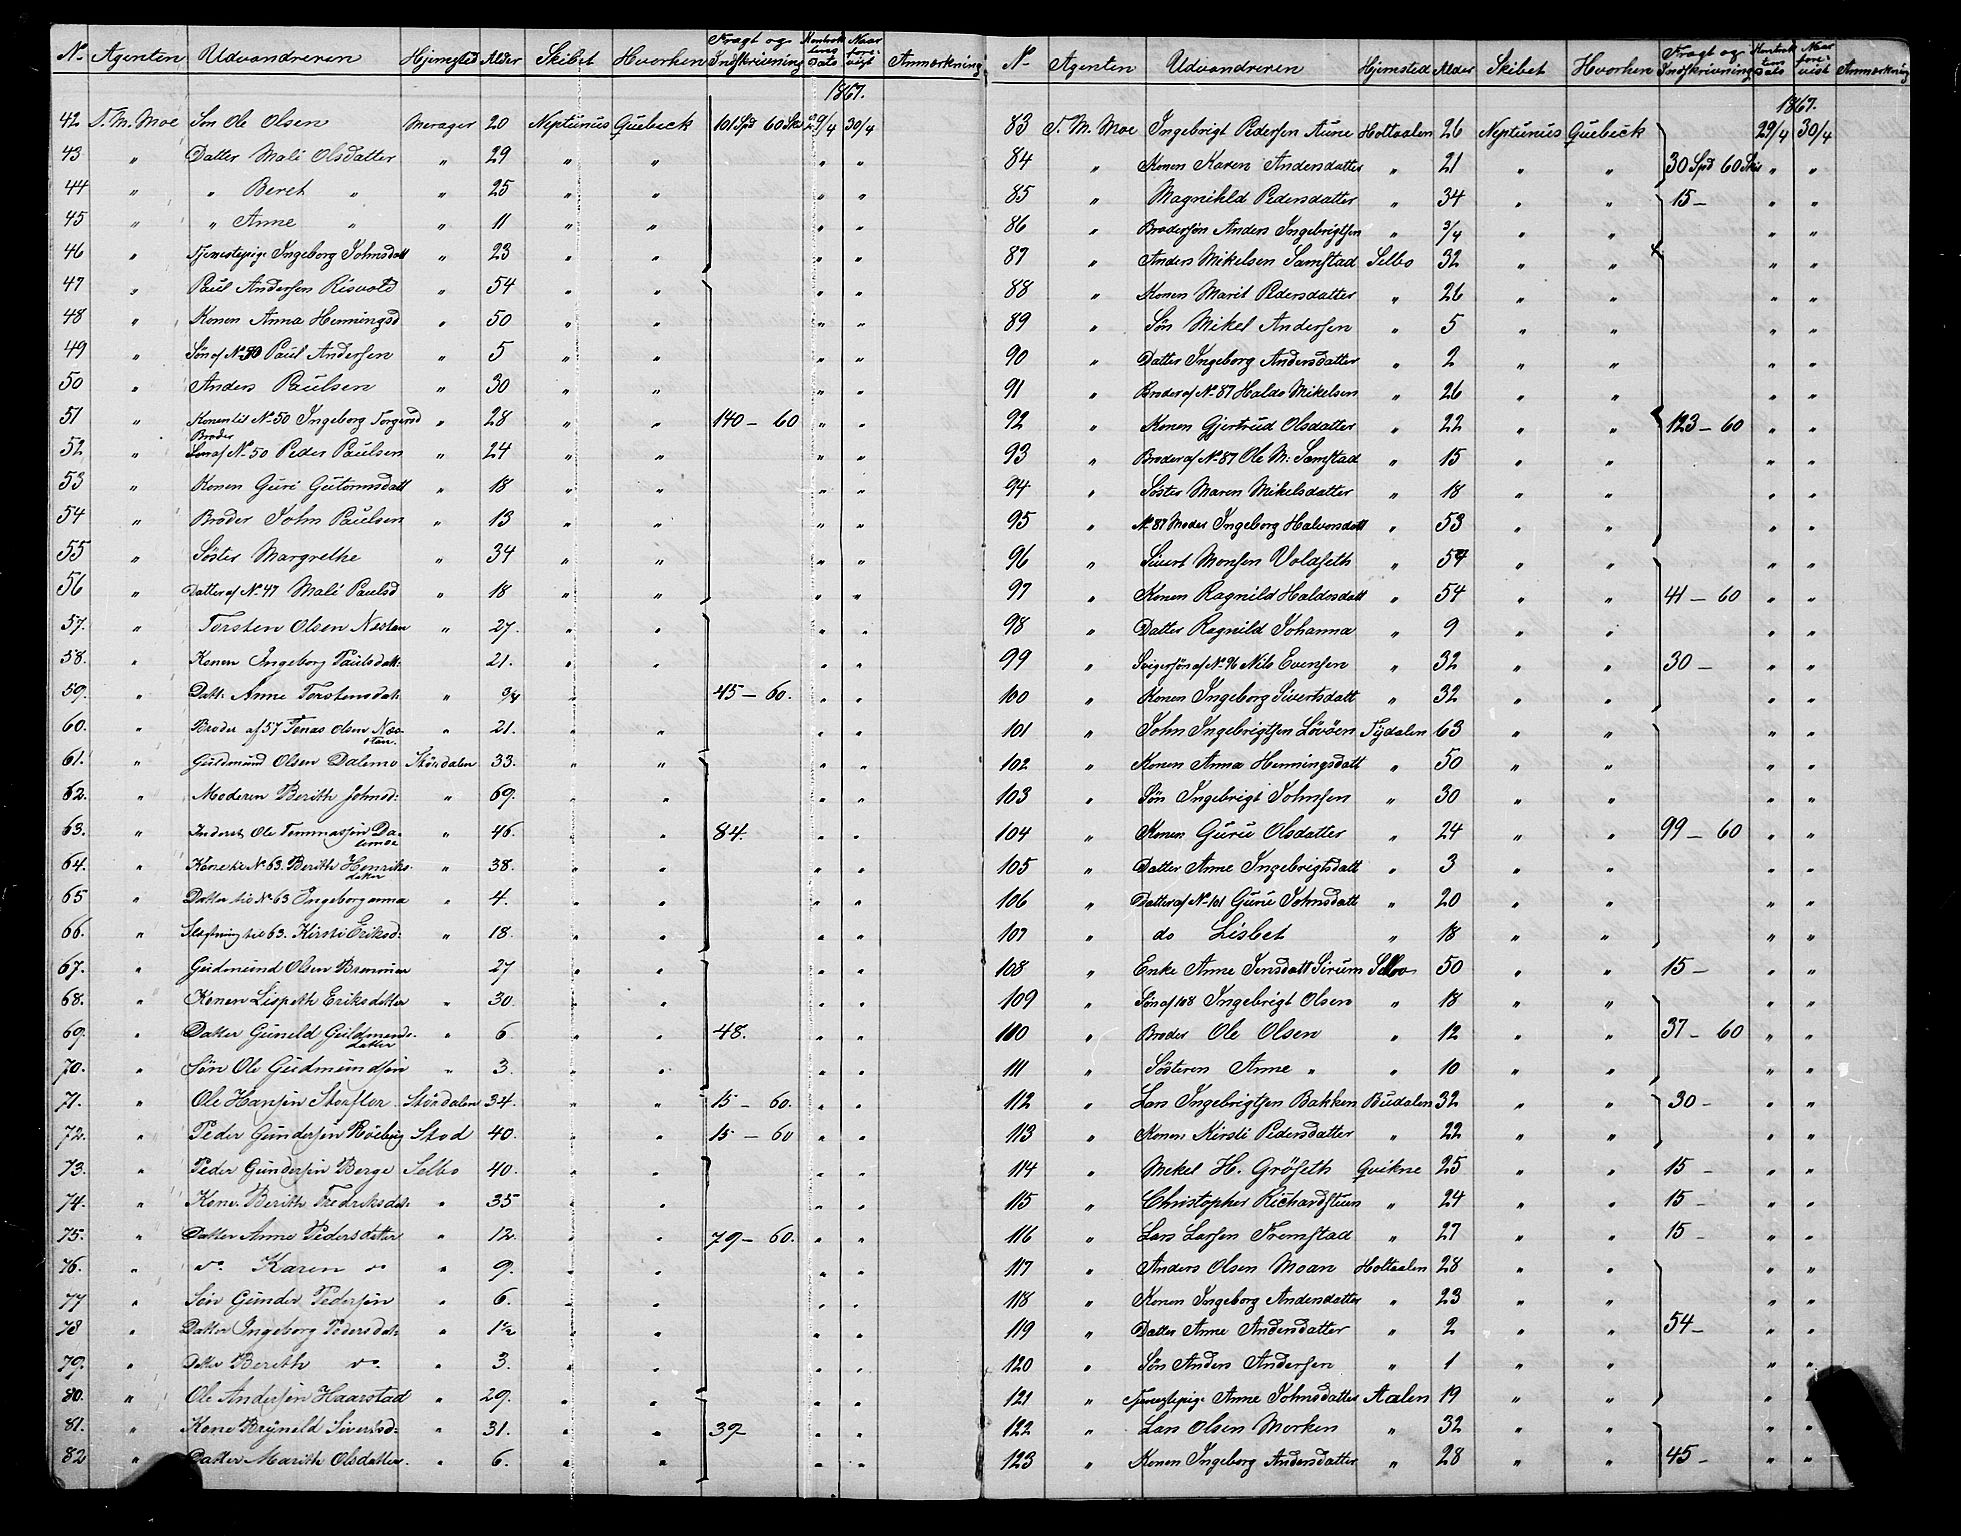 No Agenten Udvandreren Hjemsted Alder Skibet Hvorhen Fragt og Indskrivning Kontraktens Dato Naar forevist Anmærkning
1867.
42 T. M. Moe Søn Ole Olsen Merager 20 Neptunus Quebeck 101 Spd 60 Sk 29/4 30/4
43 " Datter Mali Olsdatter " 29 " " " "
44 " " Beret " " 25 " " " "
45 " " Anne " " 11 " " " "
46 " Tjenestepige Ingeborg Johnsdatt " 23 " " " "
47 " Paul Andersen Risvold " 54 " " " "
48 " Konen Anna Henningsd " 50 " " " "
49 " Søn af No 50 Paul Andersen " 5 " " " "
50 " Anders Paulsen " 30 " " " "
51 " Konen til No 50 Ingeborg Torgersd " 28 " " 140 – 60 " "
52 " Broder af No 50 Peder Paulsen " 24 " " " "
53 " Konen Guri Gutormsdatt " 18 " " " "
54 " Broder John Paulsen " 13 " " " "
55 " Søster Margrethe " 34 " " " "
56 " Datter af No 47 Mali Paulsd " 18 " " " "
57. " Torsten Olsen Nestan " 27. " " " "
58. " Konen Ingeborg Paulsdatt: 21. " " " "
59. " Datt. Anne Torstensdatt " 3/4 " 45 – 60. " "
60. " Broder af 57 Jonas Olsen Nesstan. " 21. " " " "
61. " Guldmund Olsen Dalemo Stördalen 33. " " " "
62. " Moderen Berith Johnsd: " 69. " " " "
63. " Inderst Ole Tommassen Dalemoe " 46. " " 84. " "
64. " Kone til No 63. Berith Henriksdatter " 38. " " " "
65 " Datter til No 63 Ingeborganna " 4. " " " "
66. " til 63. Kirsti Eriksd: " 18. " " " "
67. " Gudmund Olsen 27 " " " "
68. " Konen Lispeth Eriksdatter " 30. " " " "
69. " Datter Guneld Guldmundsdatter " 6. " " 48. " "
70. " Søn Ole Gudmundsen " 3. " " " "
71. " Ole Hansen Storflor Stördalen 34. " " 15 – 60. " "
72. " Peder Gundersen Stod 40. " " 15 – 60 " "
73. " Peder Gundersen Berge Selbo 40. " " " "
74. " Kone. Berith Fredriksdat. " 35 " " " "
75. " Datter Anne Pedersdatter " 12. " " 79 – 60. " "
76. " do Karen do " 9. " " " "
77 " Søn Gunder Pedersen " 6. " " " "
78 " Datter Ingeborg Pedersdat " 1 1/2 " " " "
79. " Datter Berith do " 3. " " " "
80. " Ole Andersen Haarstad " 29. " " " "
81. " Kone Brynild Sivertsd: " 31. " " 39 " "
82 " Datter Marith Olsdatter. " 6. " " " "
No Agenten Udvandreren Hjemsted Alder Skibet Hvorhen Fragt og Indskrivning Kontraktens Dato Naar forevist Anmærkning
1867.
83 T. M. Moe Ingebrigt Pedersen Aune Holtaalen 26 Neptunus Quebeck 29/4 30/4
84 " Konen Karen Andersdatter " 21 " " 30 Spd 60 Sk " "
85 " Magnhild Pedersdatter " 34 " " 15 – " "
86 " Brodersøn Anders Ingebrigtsen " 3/4 " " " "
87 " Anders Mikelsen Samstad Selbo 32 " " " "
88 " Konen Marit Pedersdatter " 26 " " " "
89 " Søn Mikel Andersen " 5 " " " "
90 " Datter Ingeborg Andersdatter " 2 " " " "
91 " Broder af No 87 Haldo Mikelsen " 26 " " " "
92 " Konen Gjertrud Olsdatter " 22 " " 123 – 60 " "
93 " Broder af No 87 Ole M: Samstad " 15 " " " "
94 " Søster Maren Mikelsdatter " 18 " " " "
95 " No 87 Moder Ingeborg Halvorsdatt " 53 " " " "
96 " Sivert Monsen Volaseth " 54 " " " "
97 " Konen Ragnild Haldosdatt " 54 " " 41 – 60 " "
98 " Datter Ragnild Johanna " 9 " " " "
99 " Svigersøn af No 96 Nils Evensen " 32 " " 30 – " "
100 " Konen Ingeborg Sivertsdatt " 32 " " " "
101 " John Ingebrigtsen Løvøen Tydalen 63 " " " "
102 " Konen Anna Henningsdatt " 50 " " " "
103 " Søn Ingebrigt Johnsen " 30 " " " "
104 " Konen Guru Olsdatter " 24 " " 99 – 60 " "
105 " Datter Anne Ingebrigtsdatt " 3 " " " "
106 " Datter af No 101 Guru Johnsdatt " 20 " " " "
107 " do Lisbet " 18 " " " "
108 " Enke Anne Jensdatt Sirum Selbo 50 " " 15 – " "
109 " Søn af 108 Ingebrigt Olsen " 18 " " " "
110 " Broder Ole Olsen " 12 " " 37 – 60 " "
111 " Søsteren Anne " " 10 " " " "
112 " Lars Ingebrigtsen Bakken Budalen 32 " " 30 – " "
113 " Konen Kirsti Pedersdatter " 22 " " " "
114 " Mekel H. Gröseth Qvikne 25 " " 15 – " "
115 " Christopher Richardsteen " 24 " " 15 – " "
116 " Lars Larsen Fremstad " 27 " " 15 – " "
117 " Anders Olsen Moan Holtaalen 28 " " " "
118 " Konen Ingeborg Andersdatter " 23 " " " "
119 " Datter Anne Andersdatter " 2 " " 54 – " "
120 " Søn Anders Andersen " 1 " " " "
121 " Tjenestepige Anne Johnsdatter Aalen 19 " " "
122 " Lars Olsen Morken " 32 " " " "
123 " Konen Ingeborg Andersdatter " 28 " " 45 – " "